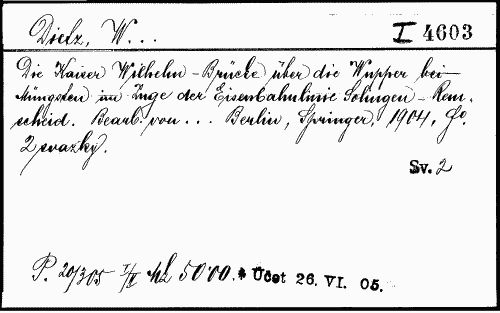 Dietz, W... I 4603
Die Kaiser Wilhelm-Brücke über die Wupper bei
Müngsten im Zuge der Eisenbahnlinie Solingen-Rem-
scheid. Bearb. von... Berlin, Springer, 1904, Fo.
2 svazky.
Sv. 2
P. 20/305 I/II ML 50'00. * Účet 26. VI. 05.